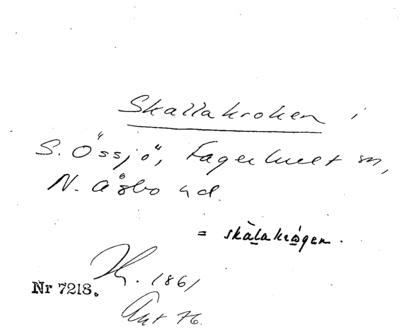 Skallakroken i
S. Össjö, Fagerhult sn,
N. Åsbo hd.
= skàlakrågen.
H. 1861
Nr 7218.
Ant 76.